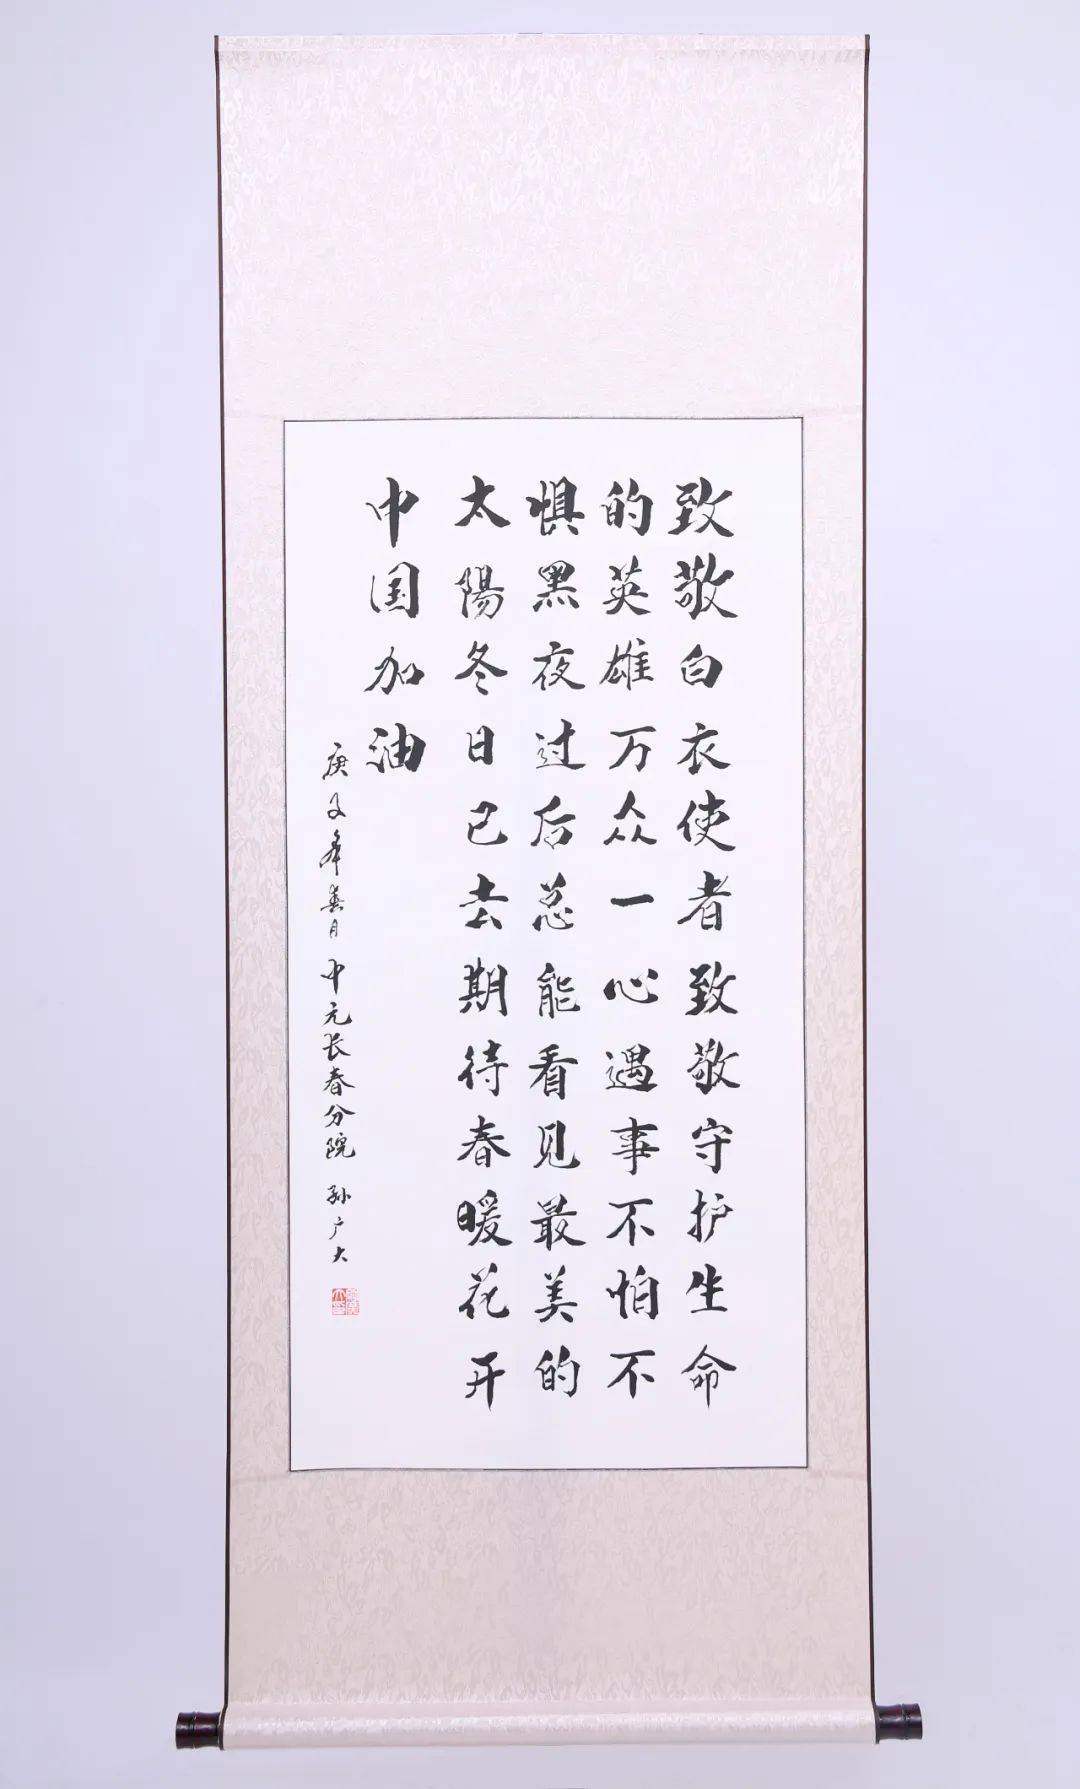 致敬白衣使者致敬守护生命
的英雄万众一心遇事不怕不
惧黑夜过后总能看见最美的
太陽冬日已去期待春暖花开
中国加油
庚子年春月 中元长春分院 孙广大